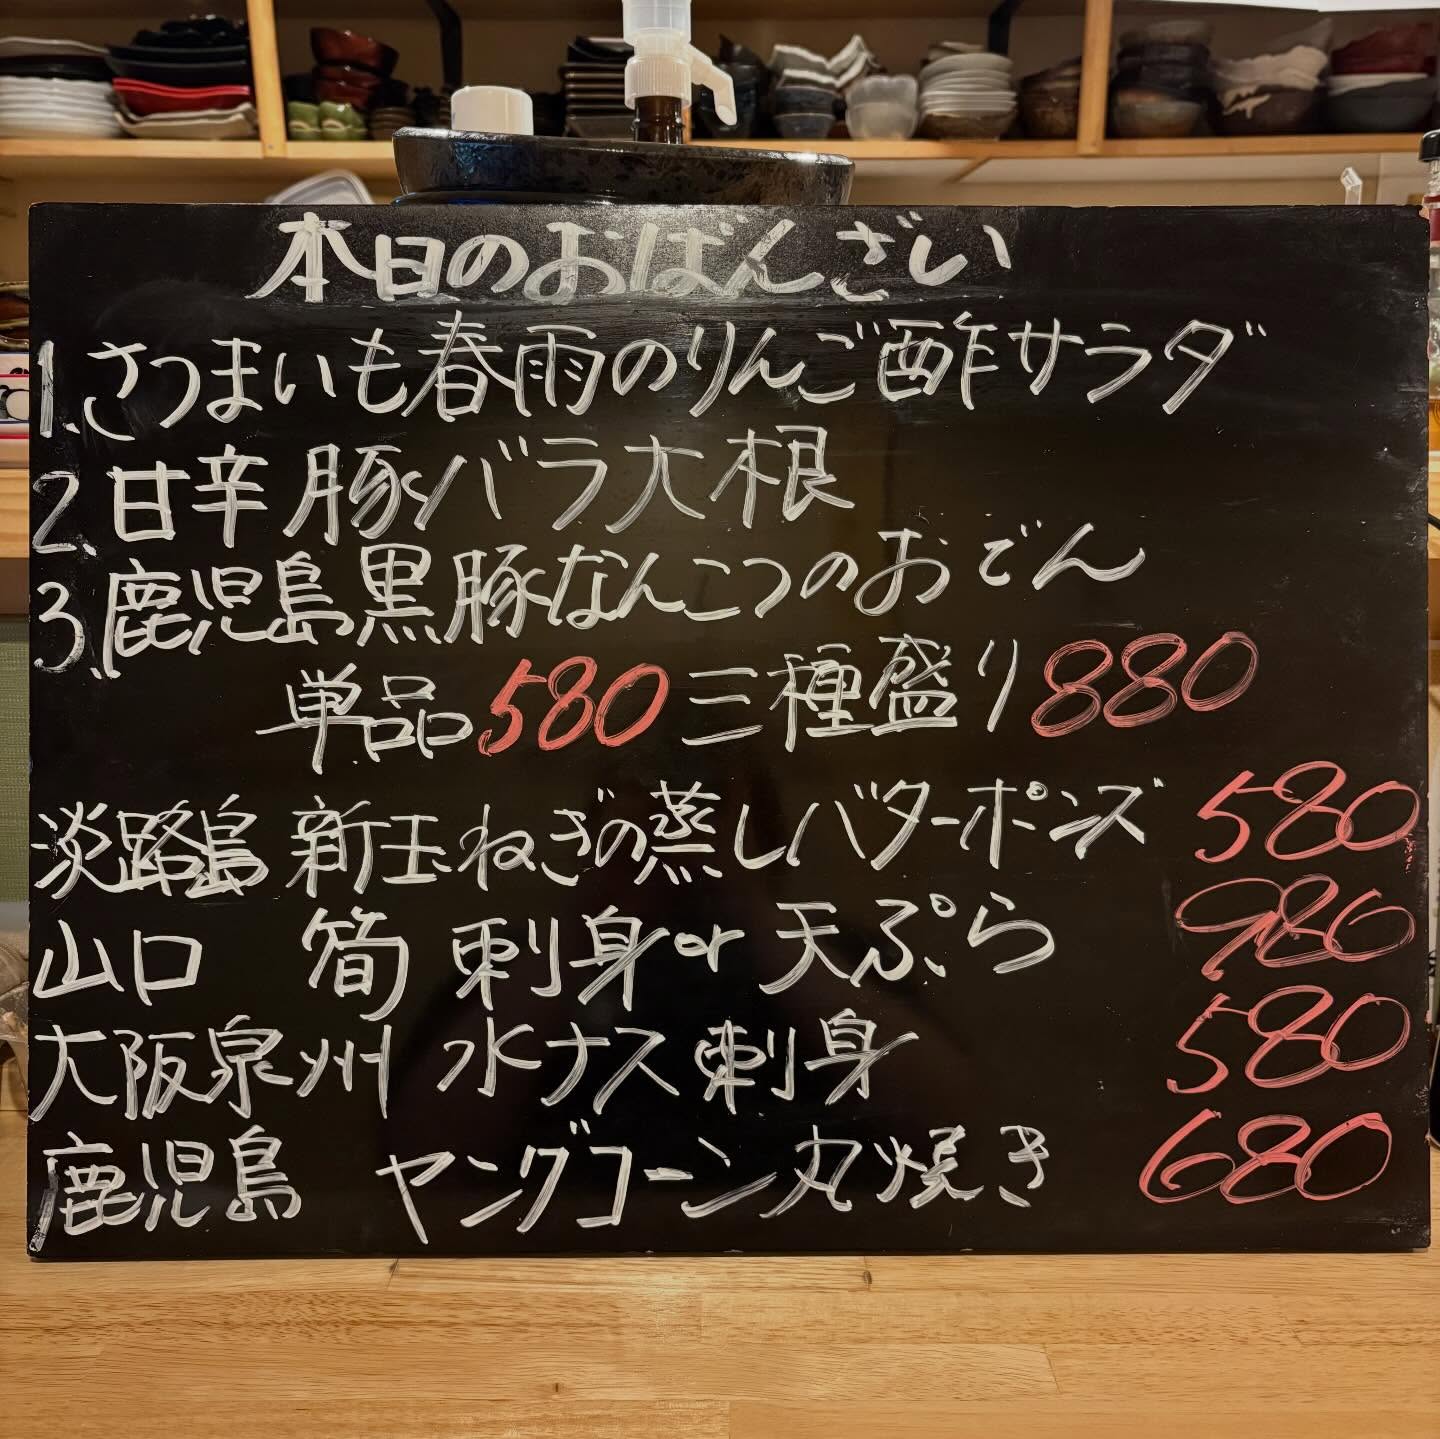 本日のおばんざい
1.さつまいも春雨のりんご酢サラダ
2.甘辛豚バラ大根
3.鹿児島黒豚なんこつのおでん
単品580 三種盛り880
淡路島 新玉ねぎの蒸しバターポンズ 580
山口 筍 刺身or天ぷら 980
大阪泉州 水ナス刺身 580
鹿児島 ヤングコーン丸焼き 680